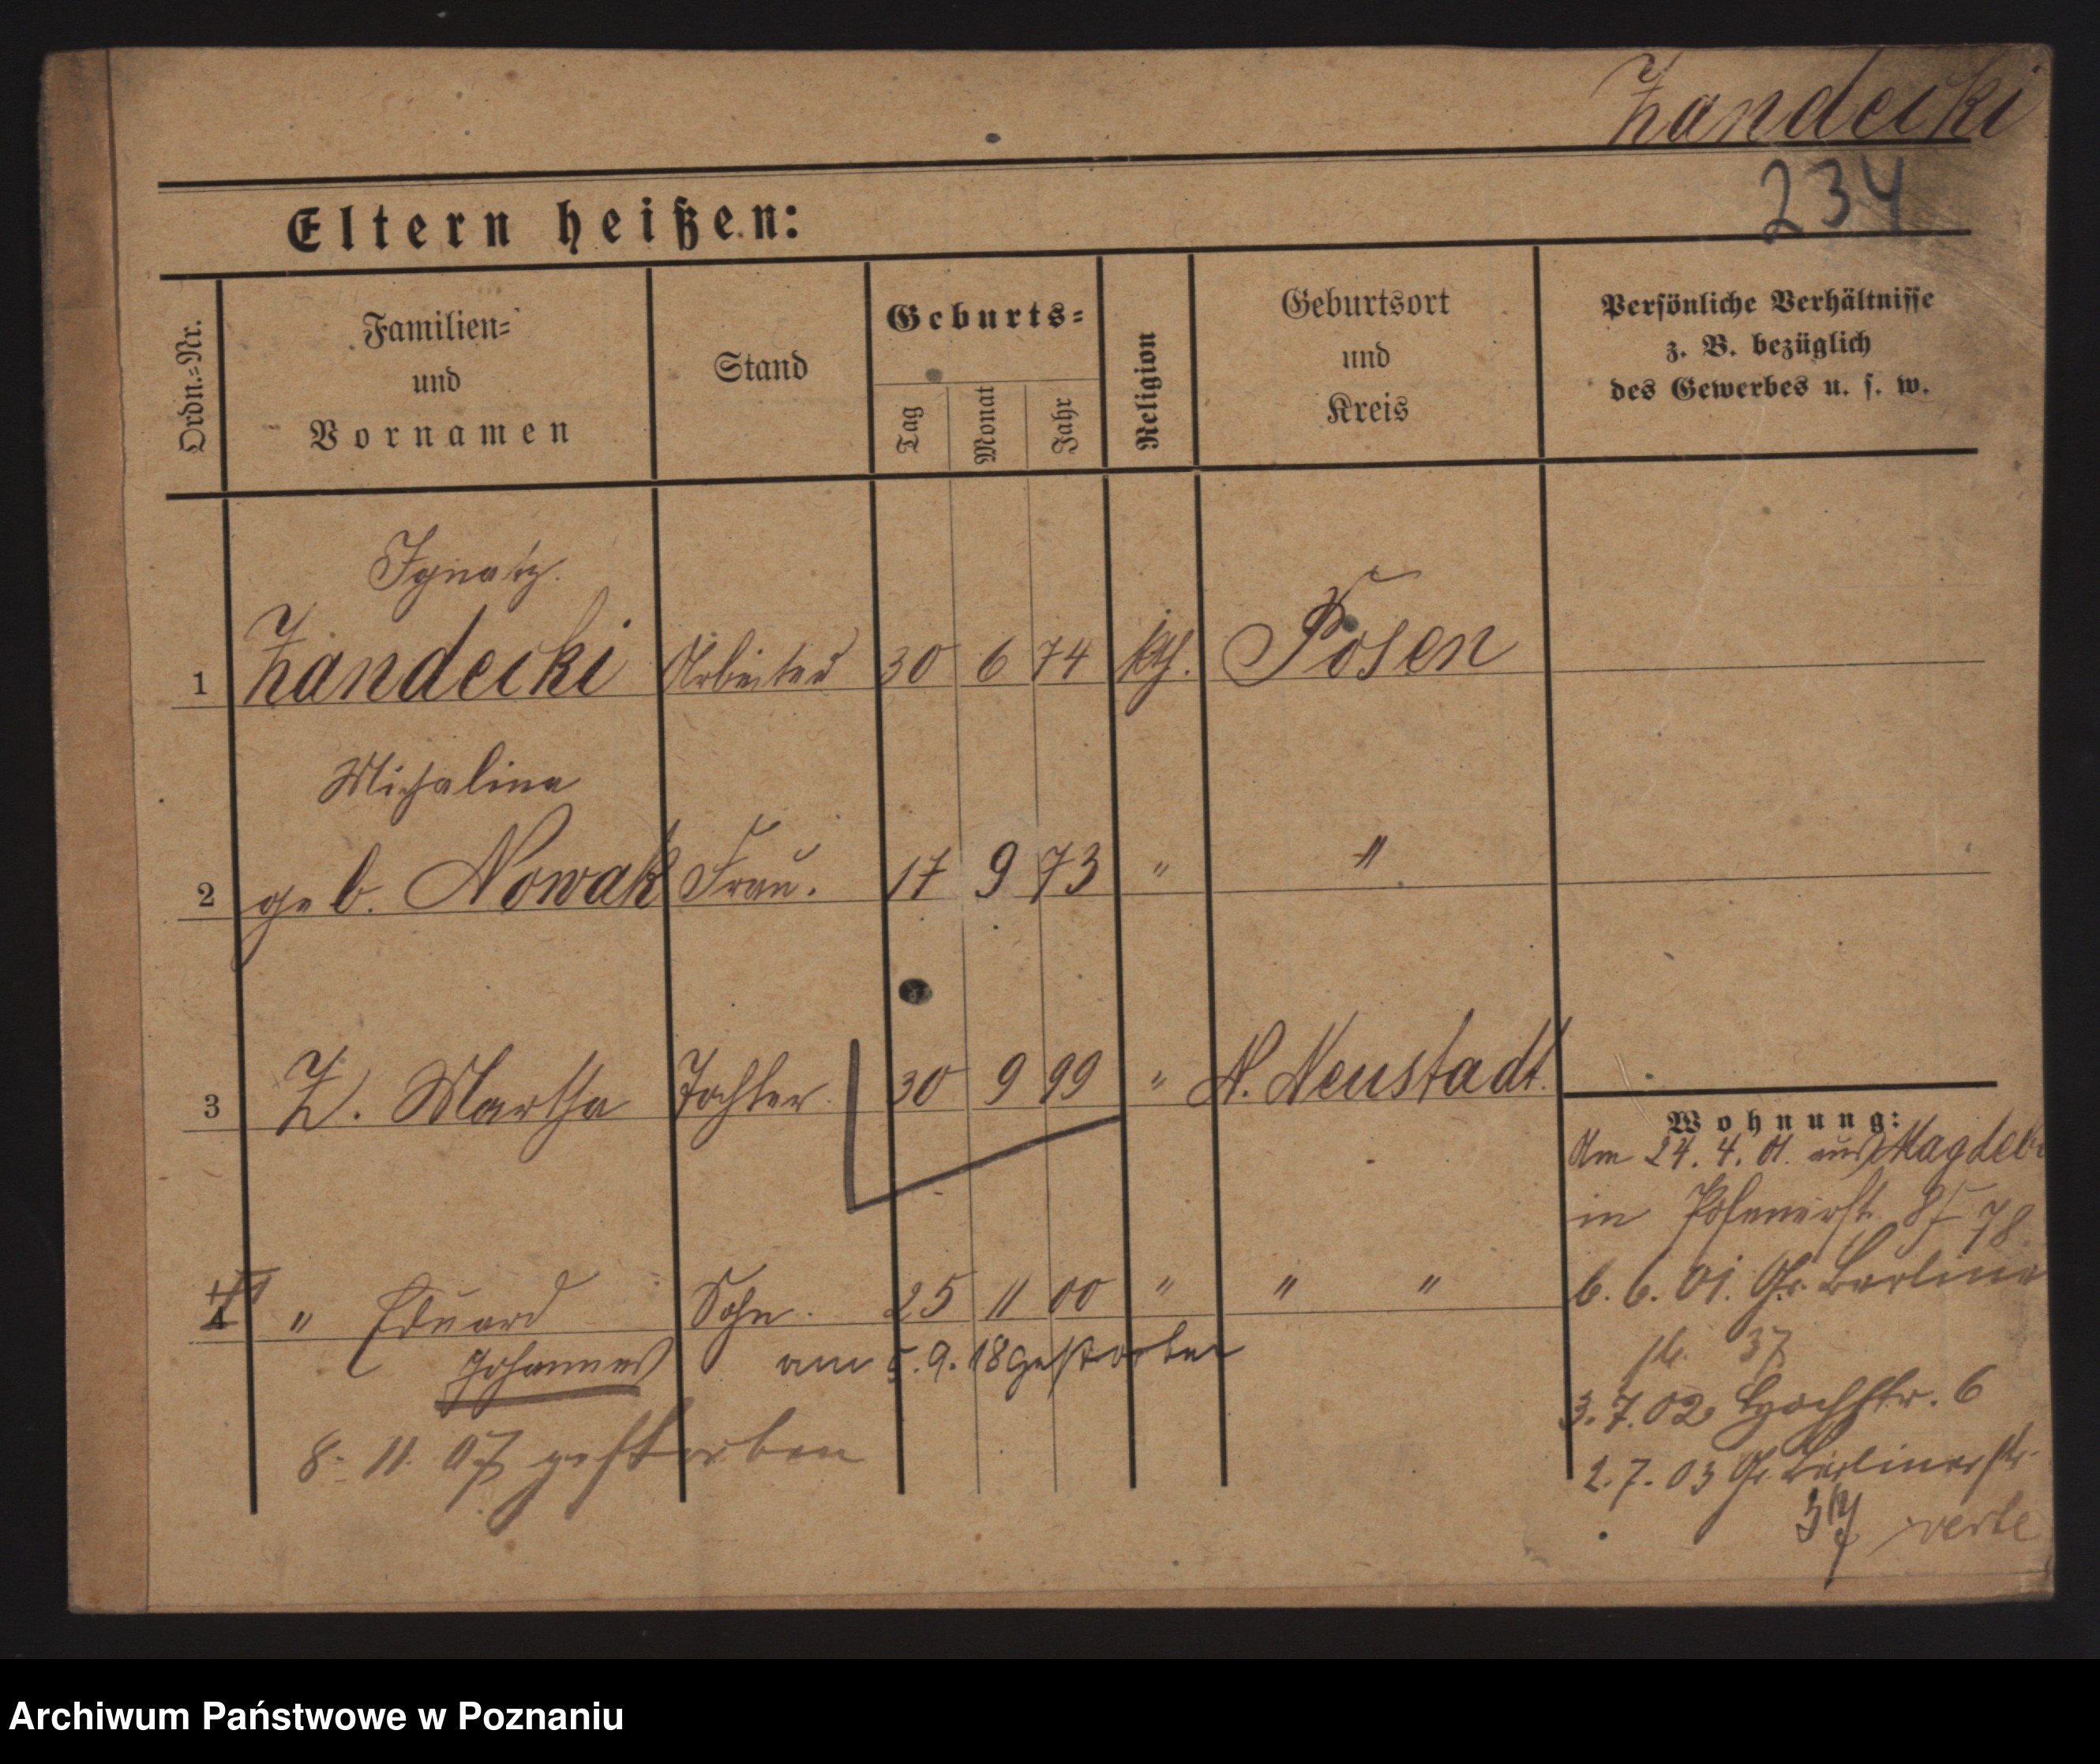 Zandecki
234
Eltern heißen:
Ordn.=Nr.
Familien=
und
Vornamen
Stand
Geburts=
Tag
Monat
Jahr
Religion
Geburtsort
und
Kreis
Persönliche Verhältnisse
z. B. bezüglich
des Gewerbes u. s. w.
Ignatz.
1 Zandecki Arbeiter 30 6 74 kth. Posen
Michalina
2 geb. Nowak Frau. 17 9 73 " "
3 Z. Martha Tochter. 30 9 99 " N. Neustadt.
4 " Eduard Sohn. 25 11 00 " " "
Johannes am 5.9.18 gestorben
8. 11. 07 gestorben
Wohnung:
Am 24. 4. 01. aus Magdeb
in Posenerst. 78.
6. 6. 01. Gr. Berliner
str. 37
3.7.02 Hochstr. 6
2.7.03 Gr. Berlinerstr.
37 verte
Archiwum Państwowe w Poznaniu